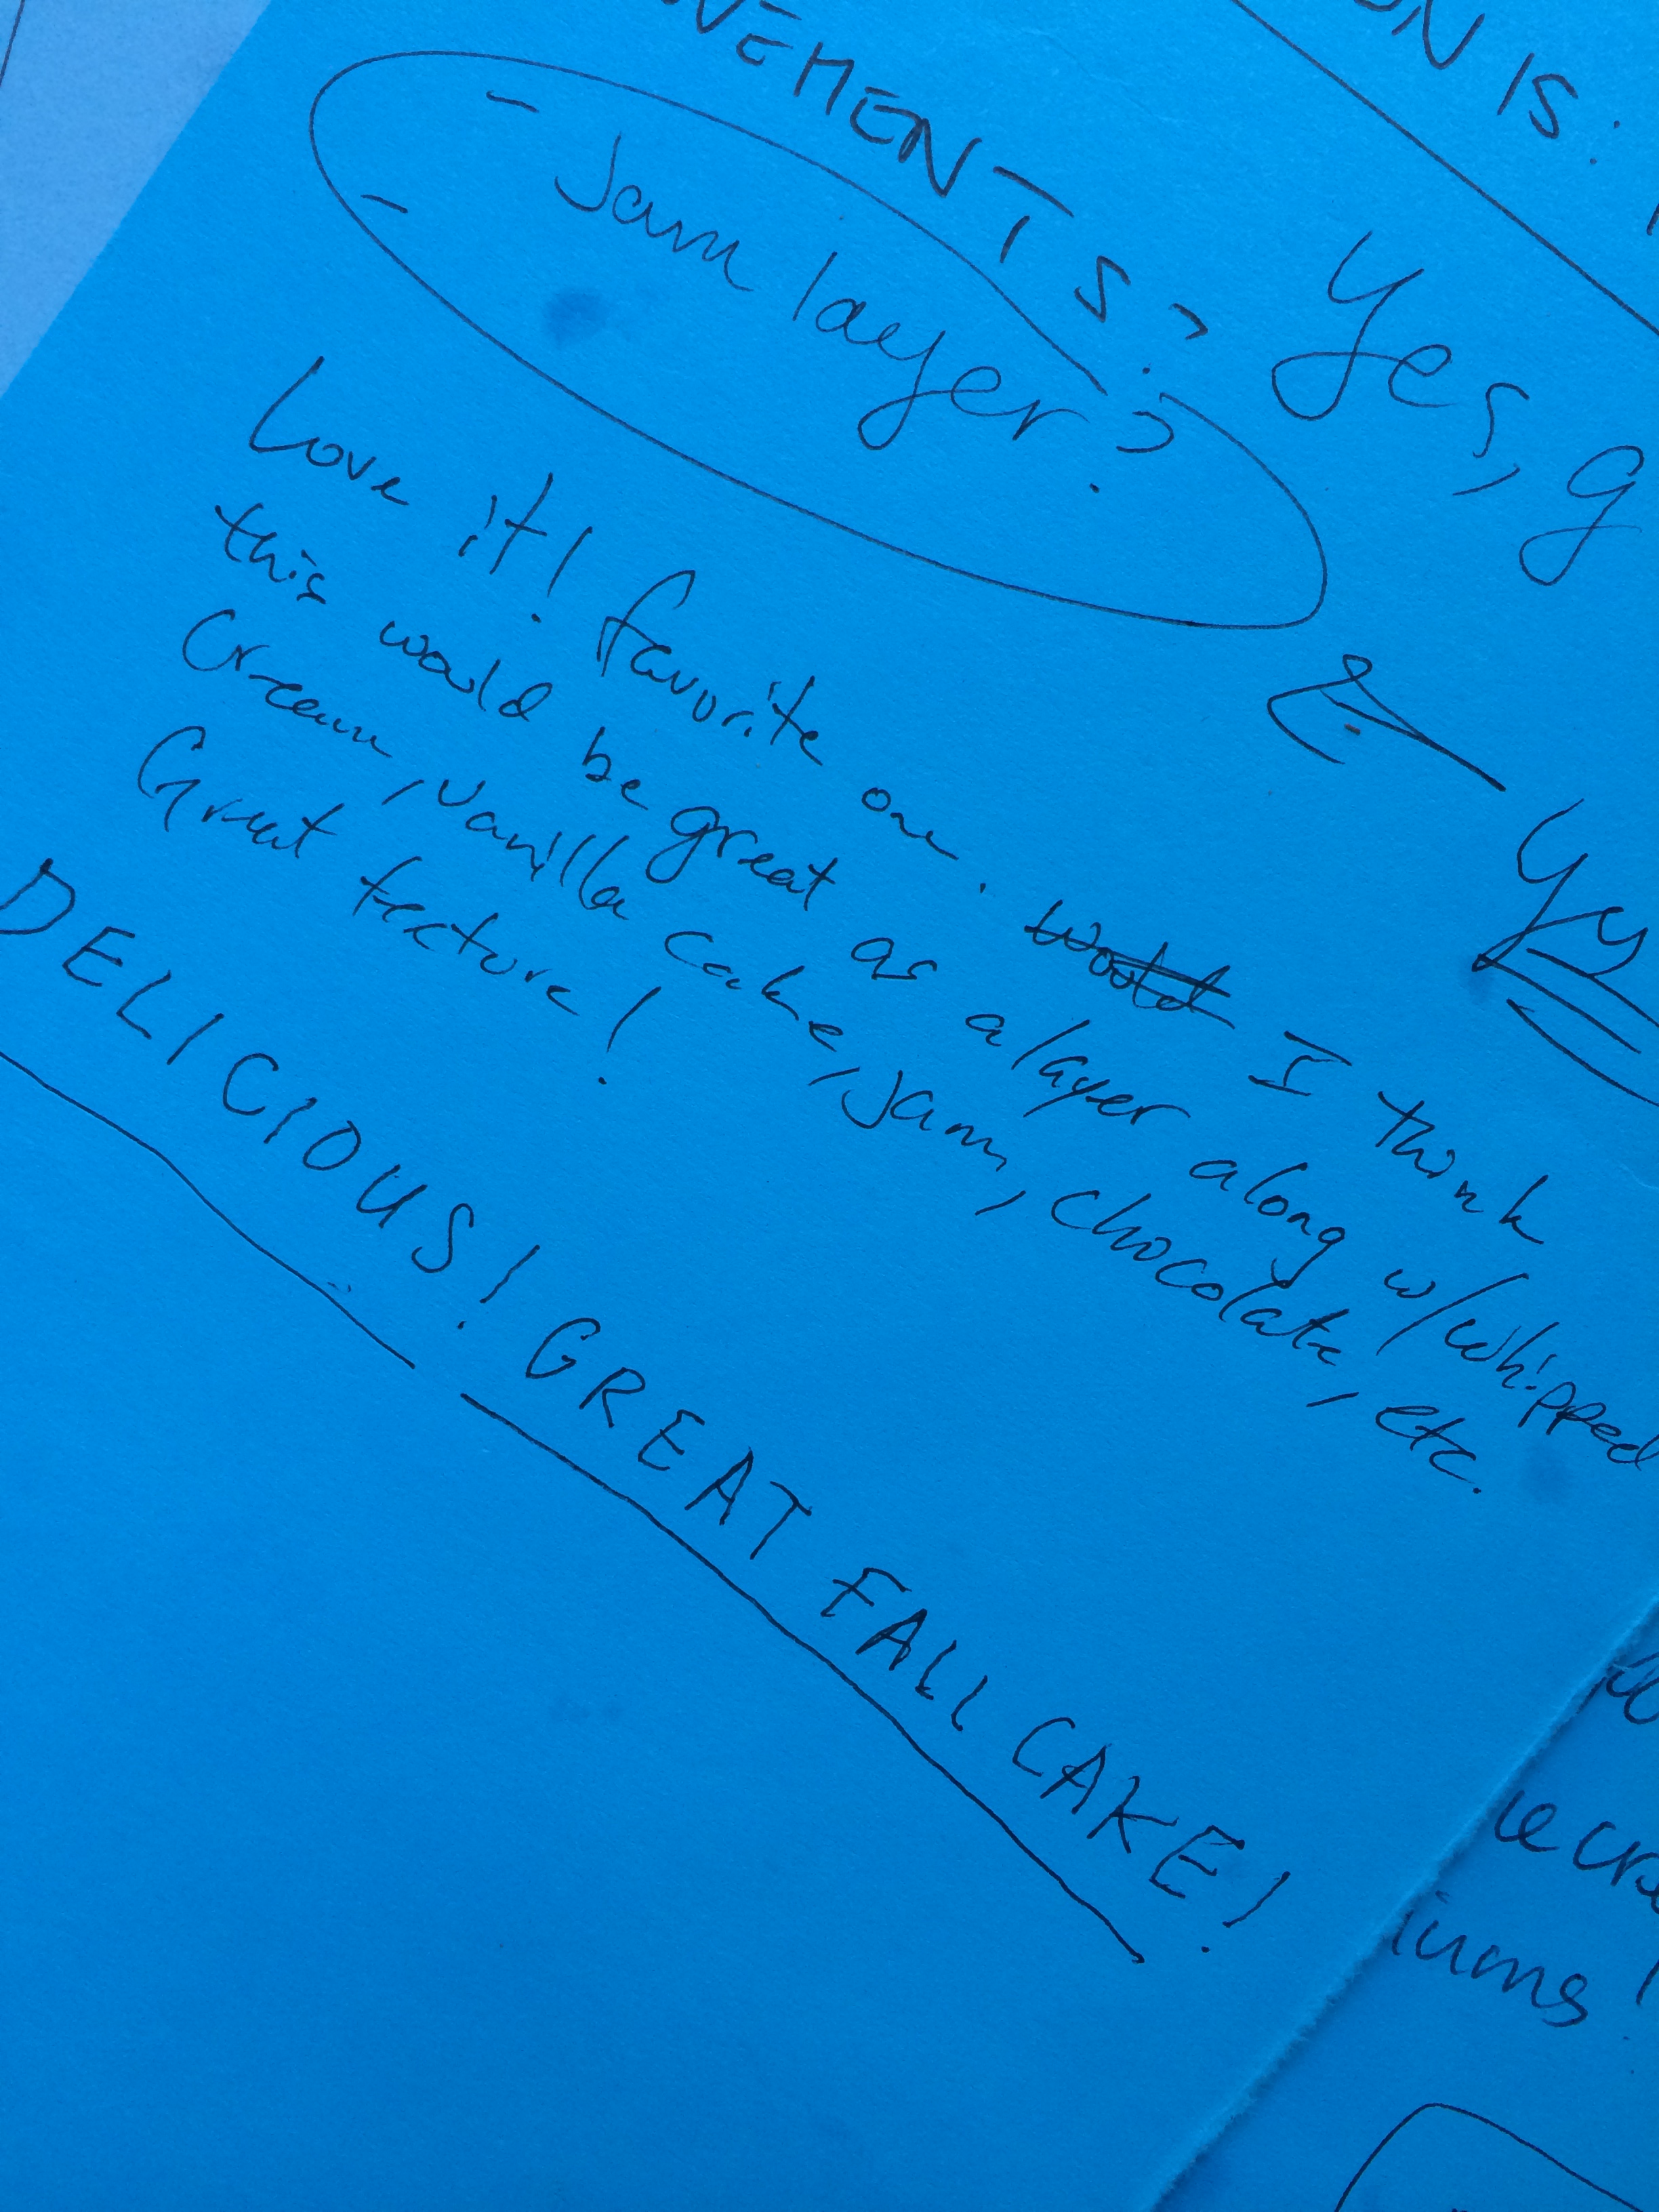 ON IS:
VEMENTS? Yes, g
- Jam layer?
-
Love it! favorite one. Would I think
this would be great as a layer along w/whipped
Cream, vanilla cake, jam, chocolate, etc.
Great texture!
DELICIOUS! GREAT FALL CAKE!